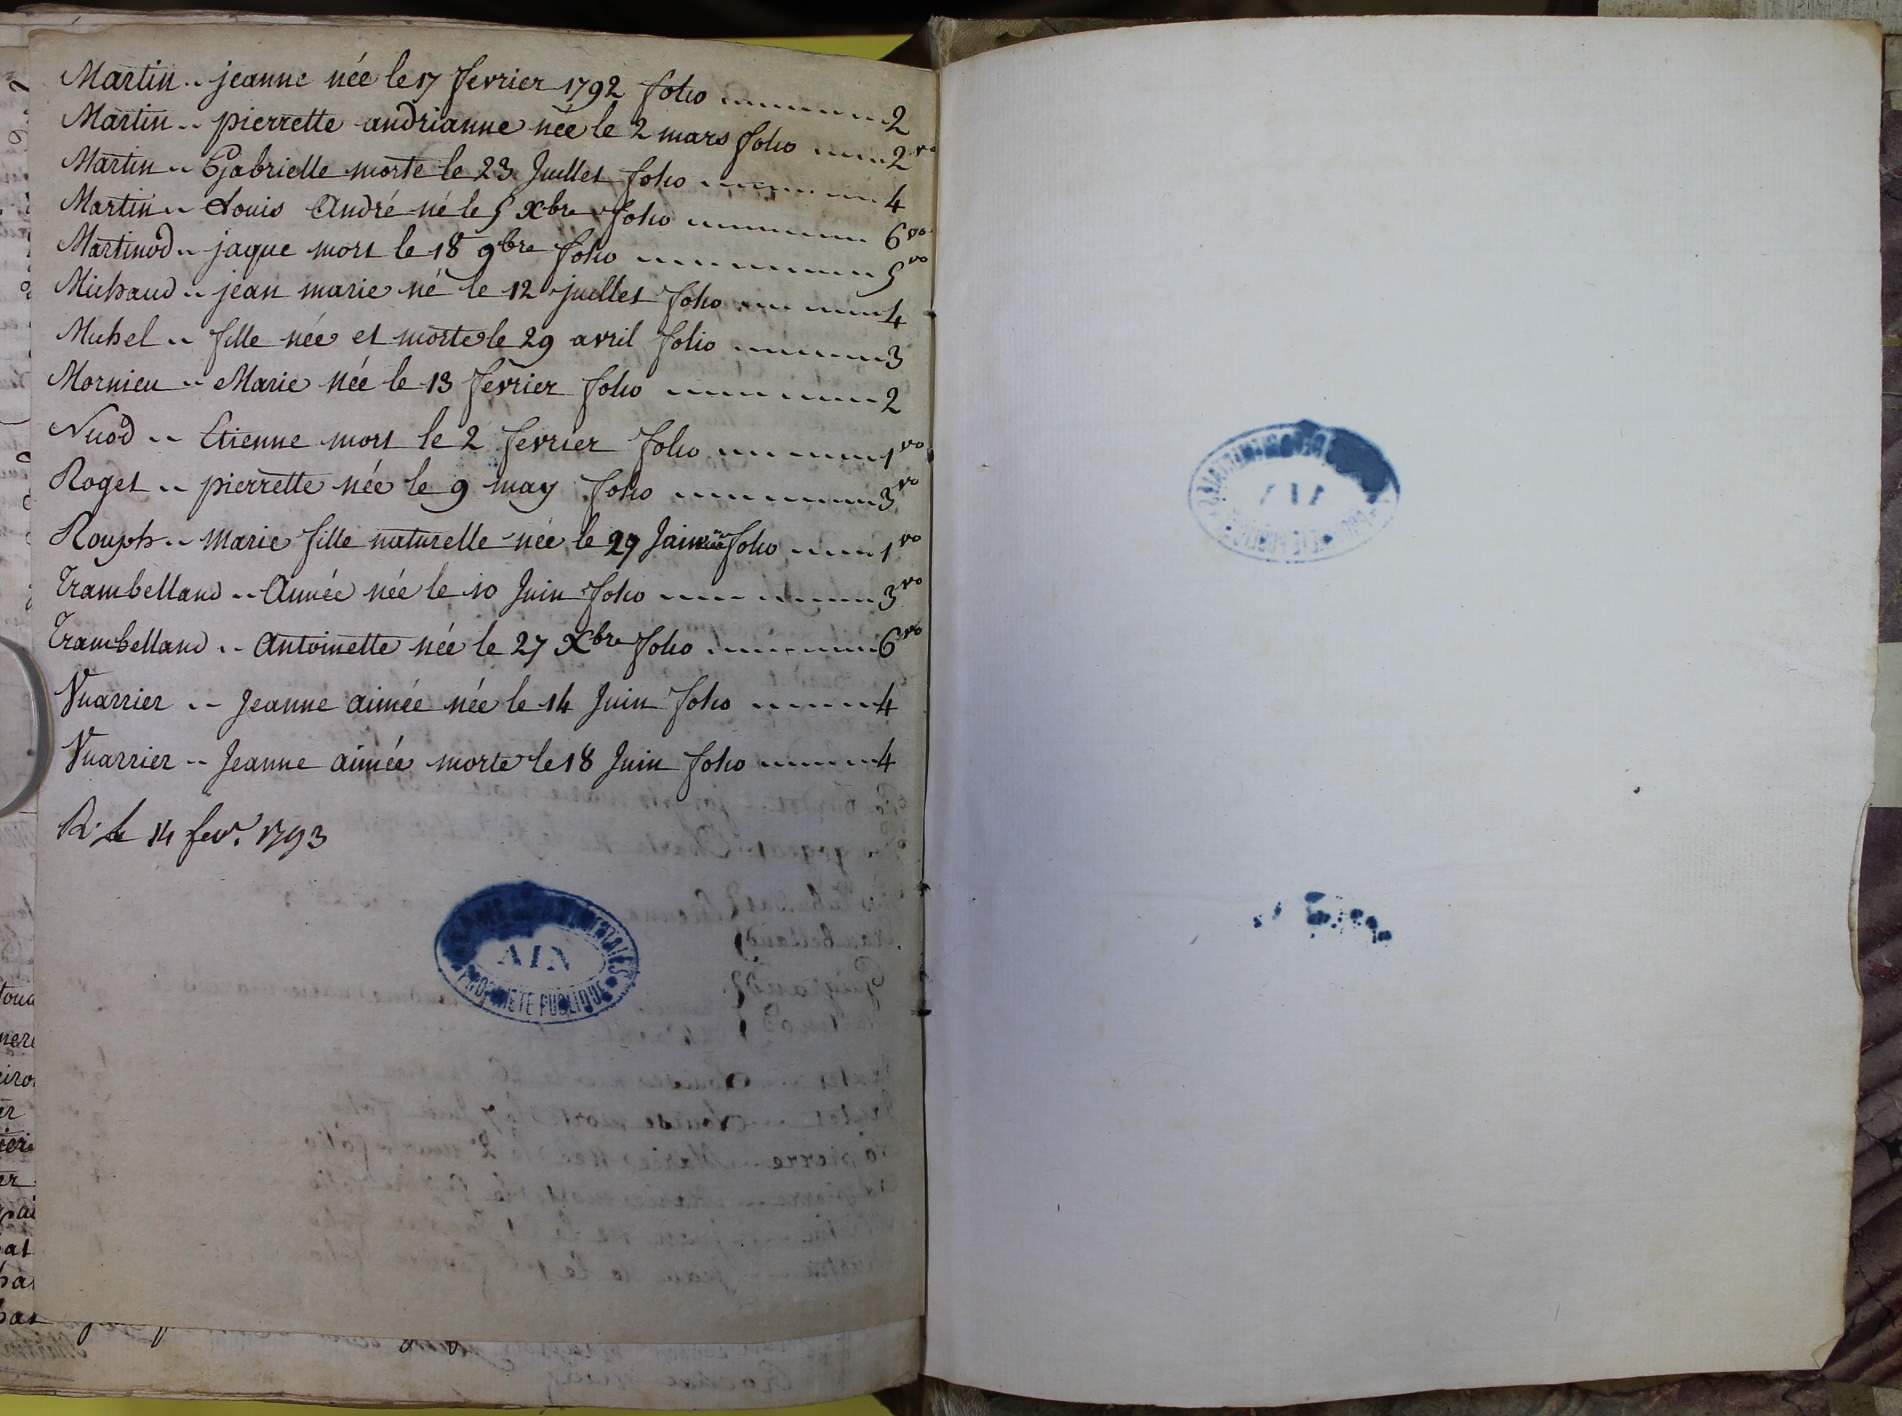 Martin .. jeanne née le 17 fevrier 1792 folio ........ 2
Martin .. pierrette andrianne née le 2 mars folio ..... 2 vo
Martin .. Gabrielle morte le 23 Juillet folio ........ 4
Martin .. Louis André né le 5 Xbre folio ........ 6 vo
Martinod .. jaque mort le 18 9bre folio ........ 5 vo
Michaud .. jean marie né le 12 juillet folio ........ 4
Michel .. fille née et morte le 29 avril folio ........ 3
Mornieu .. Marie née le 13 fevrier folio ........ 2
Nuod .. Etienne mort le 2 fevrier folio ........ 1 vo
Roget .. pierrette née le 9 may folio ........ 3 vo
Rouph .. Marie fille naturelle née le 29 Janvier folio ..... 1 vo
Trambelland .. Aimée née le 10 Juin folio ........ 3 vo
Trambelland .. Antoinette née le 27 Xbre folio ........ 6 vo
Vuarrier .. Jeanne aimée née le 14 Juin folio ...... 4
Vuarrier .. Jeanne aimée morte le 18 Juin folio ...... 4
R. le 14 fevr. 1793
AIN
PROPRIÉTÉ PUBLIQUE